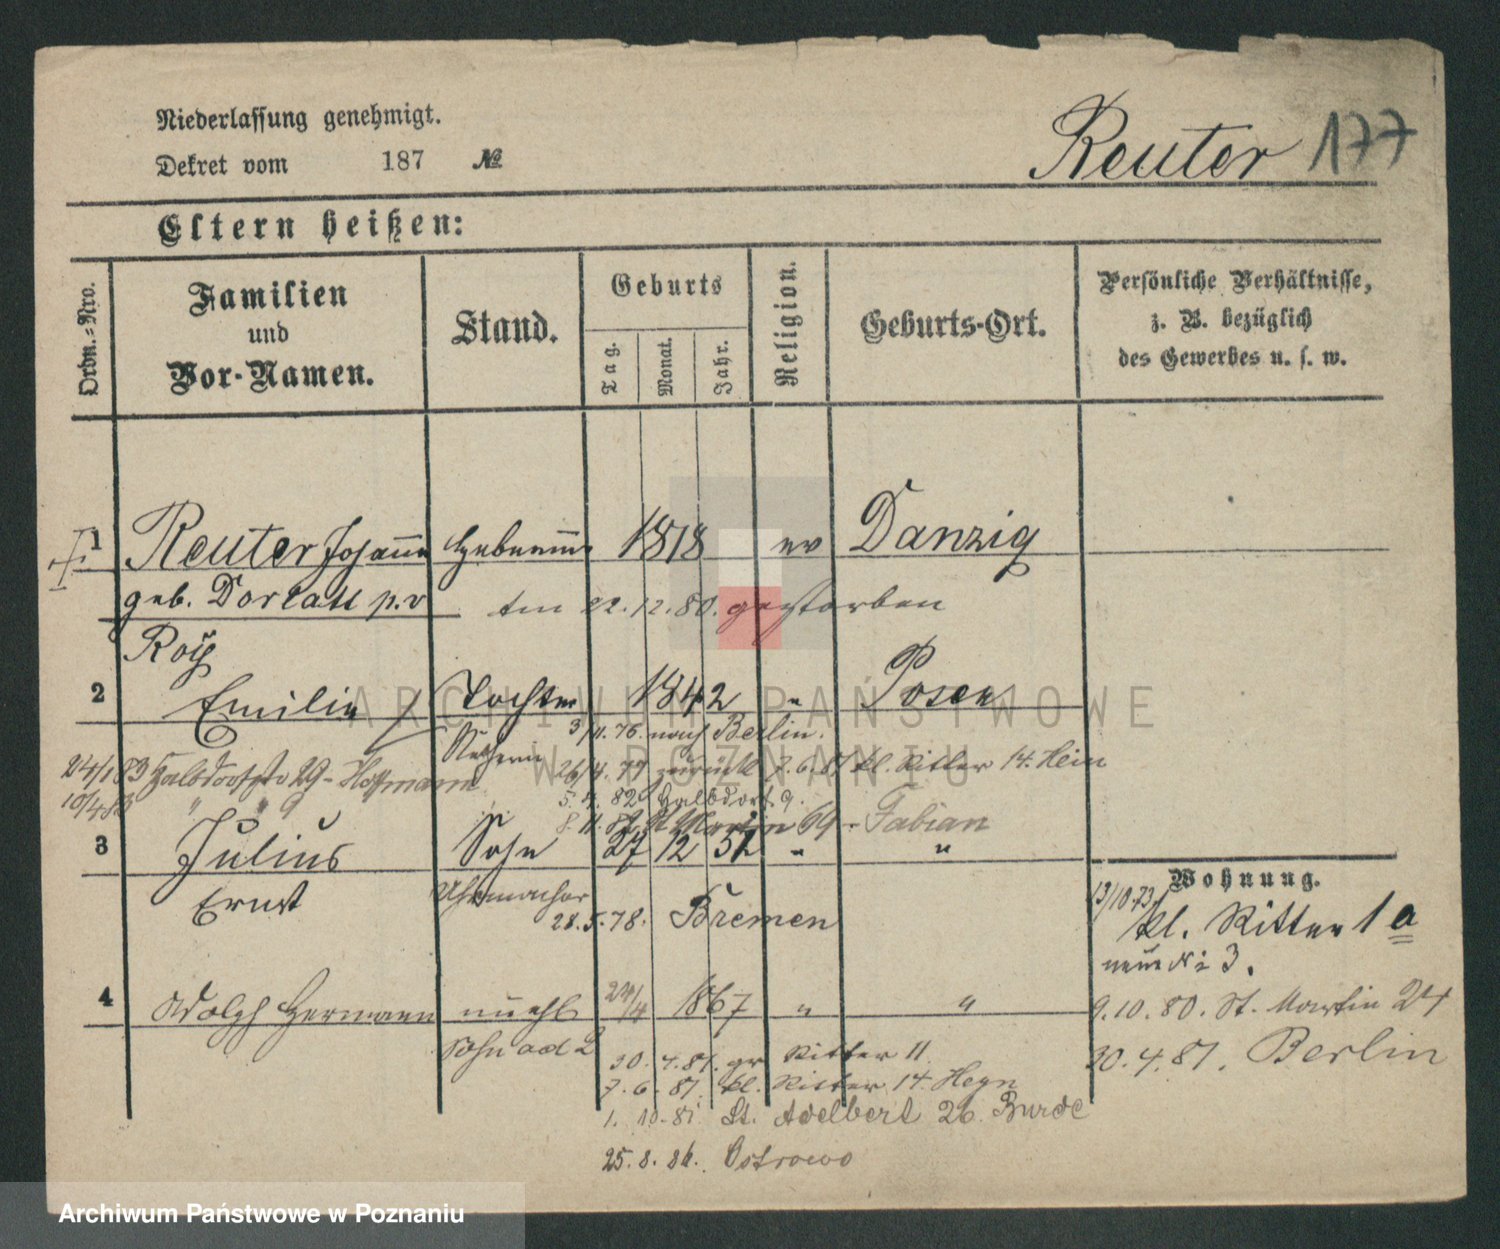 Niederlassung genehmigt.
Dekret vom 187 №
Reuter 177
Eltern heißen:
Ordn.-Nro.
Familien
und
Vor-Namen.
Stand.
Geburts
Tag.
Monat.
Jahr.
Religion.
Geburts-Ort.
Persönliche Verhältnisse,
z. B. bezüglich
des Gewerbes u. s. w.
1 Reuter Johanna 1818 ev Danzig
geb. am 22.12.80. gestorben
2 Emilie Tochter 1842 " Posen
3/11.76. nach Berlin.
24/1 83 Halbdorfstr 29 - Hoffmann
26/4.77 zurück 7.6.81 kl. Ritter 14. Hein
10/4 83 " " 9
82 Halbdorf 9.
8.11.82 St Martin 69 - Fabian
3 Julius Sohn 27 12 52 " "
Ernst
Uhrmacher
28.5.78. Bremen
Wohnung.
13/10.73.
kl. Ritter 1 a
neue № 3.
4 Adolph Hermann unehl 24/4 1867 " "
Sohn ad 2
9.10.80. St. Martin 24
30.4.81. gr Ritter 11
30.4.81. Berlin
7.6.81. kl. Ritter 14. Heyn
1. 10.81 St. Adelbert 26. Burde
25.8.84. Ostrowo
ARCHIWUM PAŃSTWOWE
W POZNANIU
Archiwum Państwowe w Poznaniu